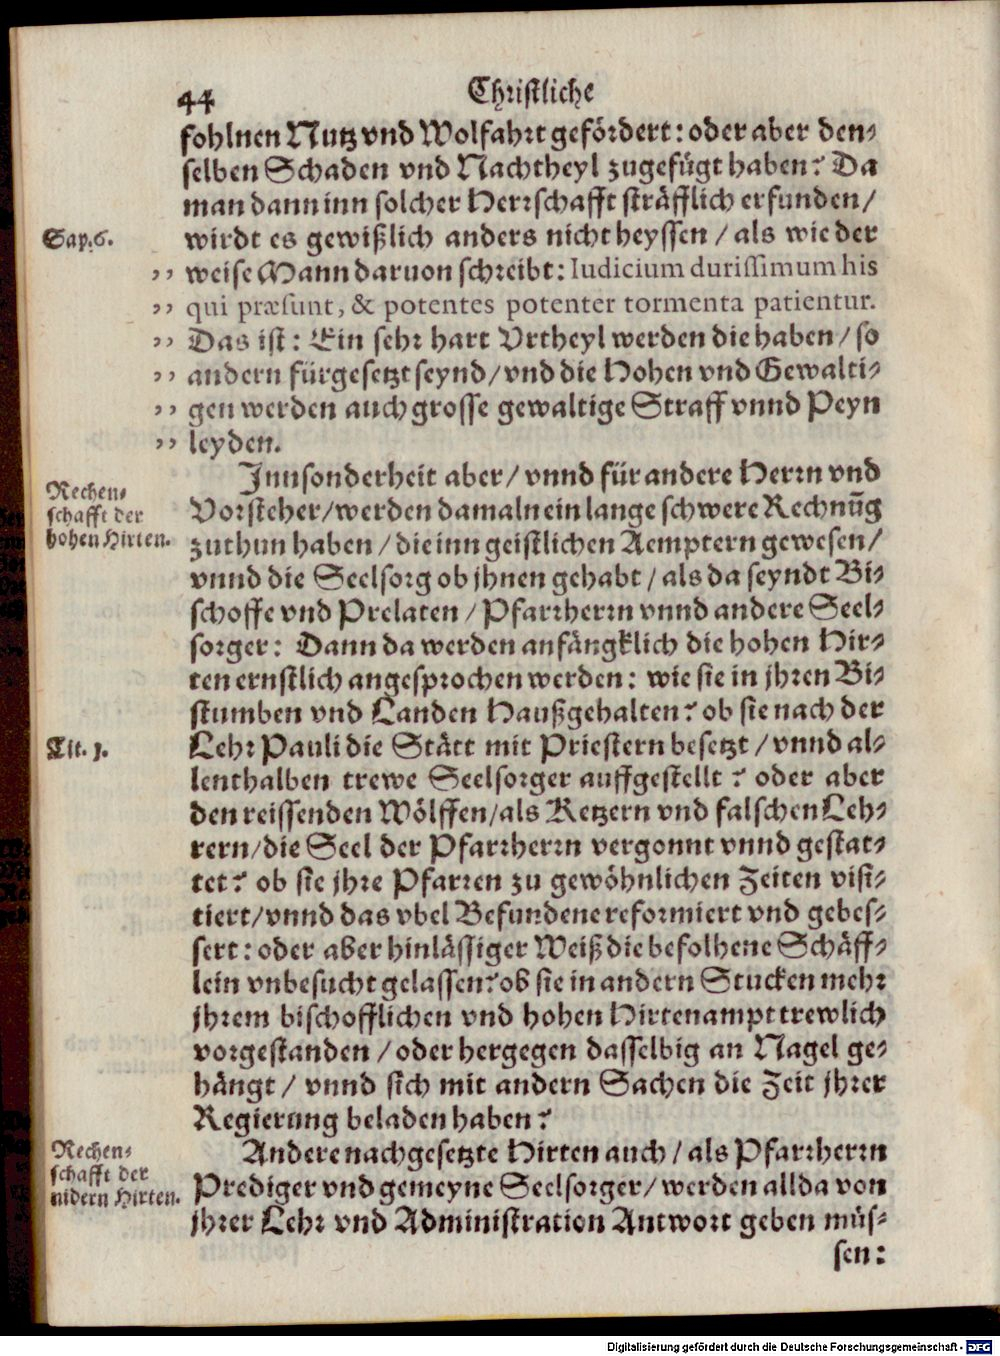 44 Christliche
fohlnen Nutz vnd Wolfahrt gefördert: oder aber den-
selben Schaden vnd Nachtheyl zugefügt haben? Da
man dann inn solcher Herrschafft sträfflich erfunden/
Sap. 6.
wirdt es gewißlich anders nicht heyssen / als wie der
,, weise Mann daruon schreibt: Iudicium durissimum his
,, qui præsunt, & potentes potenter tormenta patientur.
,, Das ist: Ein sehr hart Vrtheyl werden die haben / so
,, andern fürgesetzt seynd/ vnd die Hohen vnd Gewalti-
,, gen werden auch grosse gewaltige Straff vnnd Peyn
,, leyden.
Innsonderheit aber / vnnd für andere Herrn vnd
Rechen-
schafft der
hohen Hirten.
Vorsteher/werden damaln ein lange schwere Rechnūg
zuthun haben / die inn geistlichen Aemptern gewesen/
vnnd die Seelsorg ob jhnen gehabt / als da seyndt Bi-
schoffe vnd Prelaten / Pfarrherrn vnnd andere Seel-
sorger: Dann da werden anfängklich die hohen Hir-
ten ernstlich angesprochen werden: wie sie in jhren Bi-
stumben vnd Landen Haußgehalten? ob sie nach der
Tit. 1.
Lehr Pauli die Stätt mit Priestern besetzt / vnnd al-
lenthalben trewe Seelsorger auffgestellt? oder aber
den reissenden Wölffen/als Ketzern vnd falschen Leh-
rern/die Seel der Pfarrherrn vergonnt vnnd gestat-
tet? ob sie jhre Pfarren zu gewöhnlichen Zeiten visi-
tiert/vnnd das vbel Befundene reformiert vnd gebes-
sert: oder aber hinlässiger Weiß die befolhene Schäff-
lein vnbesucht gelassen? ob sie in andern Stucken mehr
jhrem bischofflichen vnd hohen Hirtenampt trewlich
vorgestanden / oder hergegen dasselbig an Nagel ge-
hängt / vnnd sich mit andern Sachen die Zeit jhrer
Regierung beladen haben?
Rechen-
schafft der
nidern Hirten.
Andere nachgesetzte Hirten auch / als Pfarrherrn
Prediger vnd gemeyne Seelsorger/ werden allda von
jhrer Lehr vnd Administration Antwort geben müs-
sen:
Digitalisierung gefördert durch die Deutsche Forschungsgemeinschaft - DFG